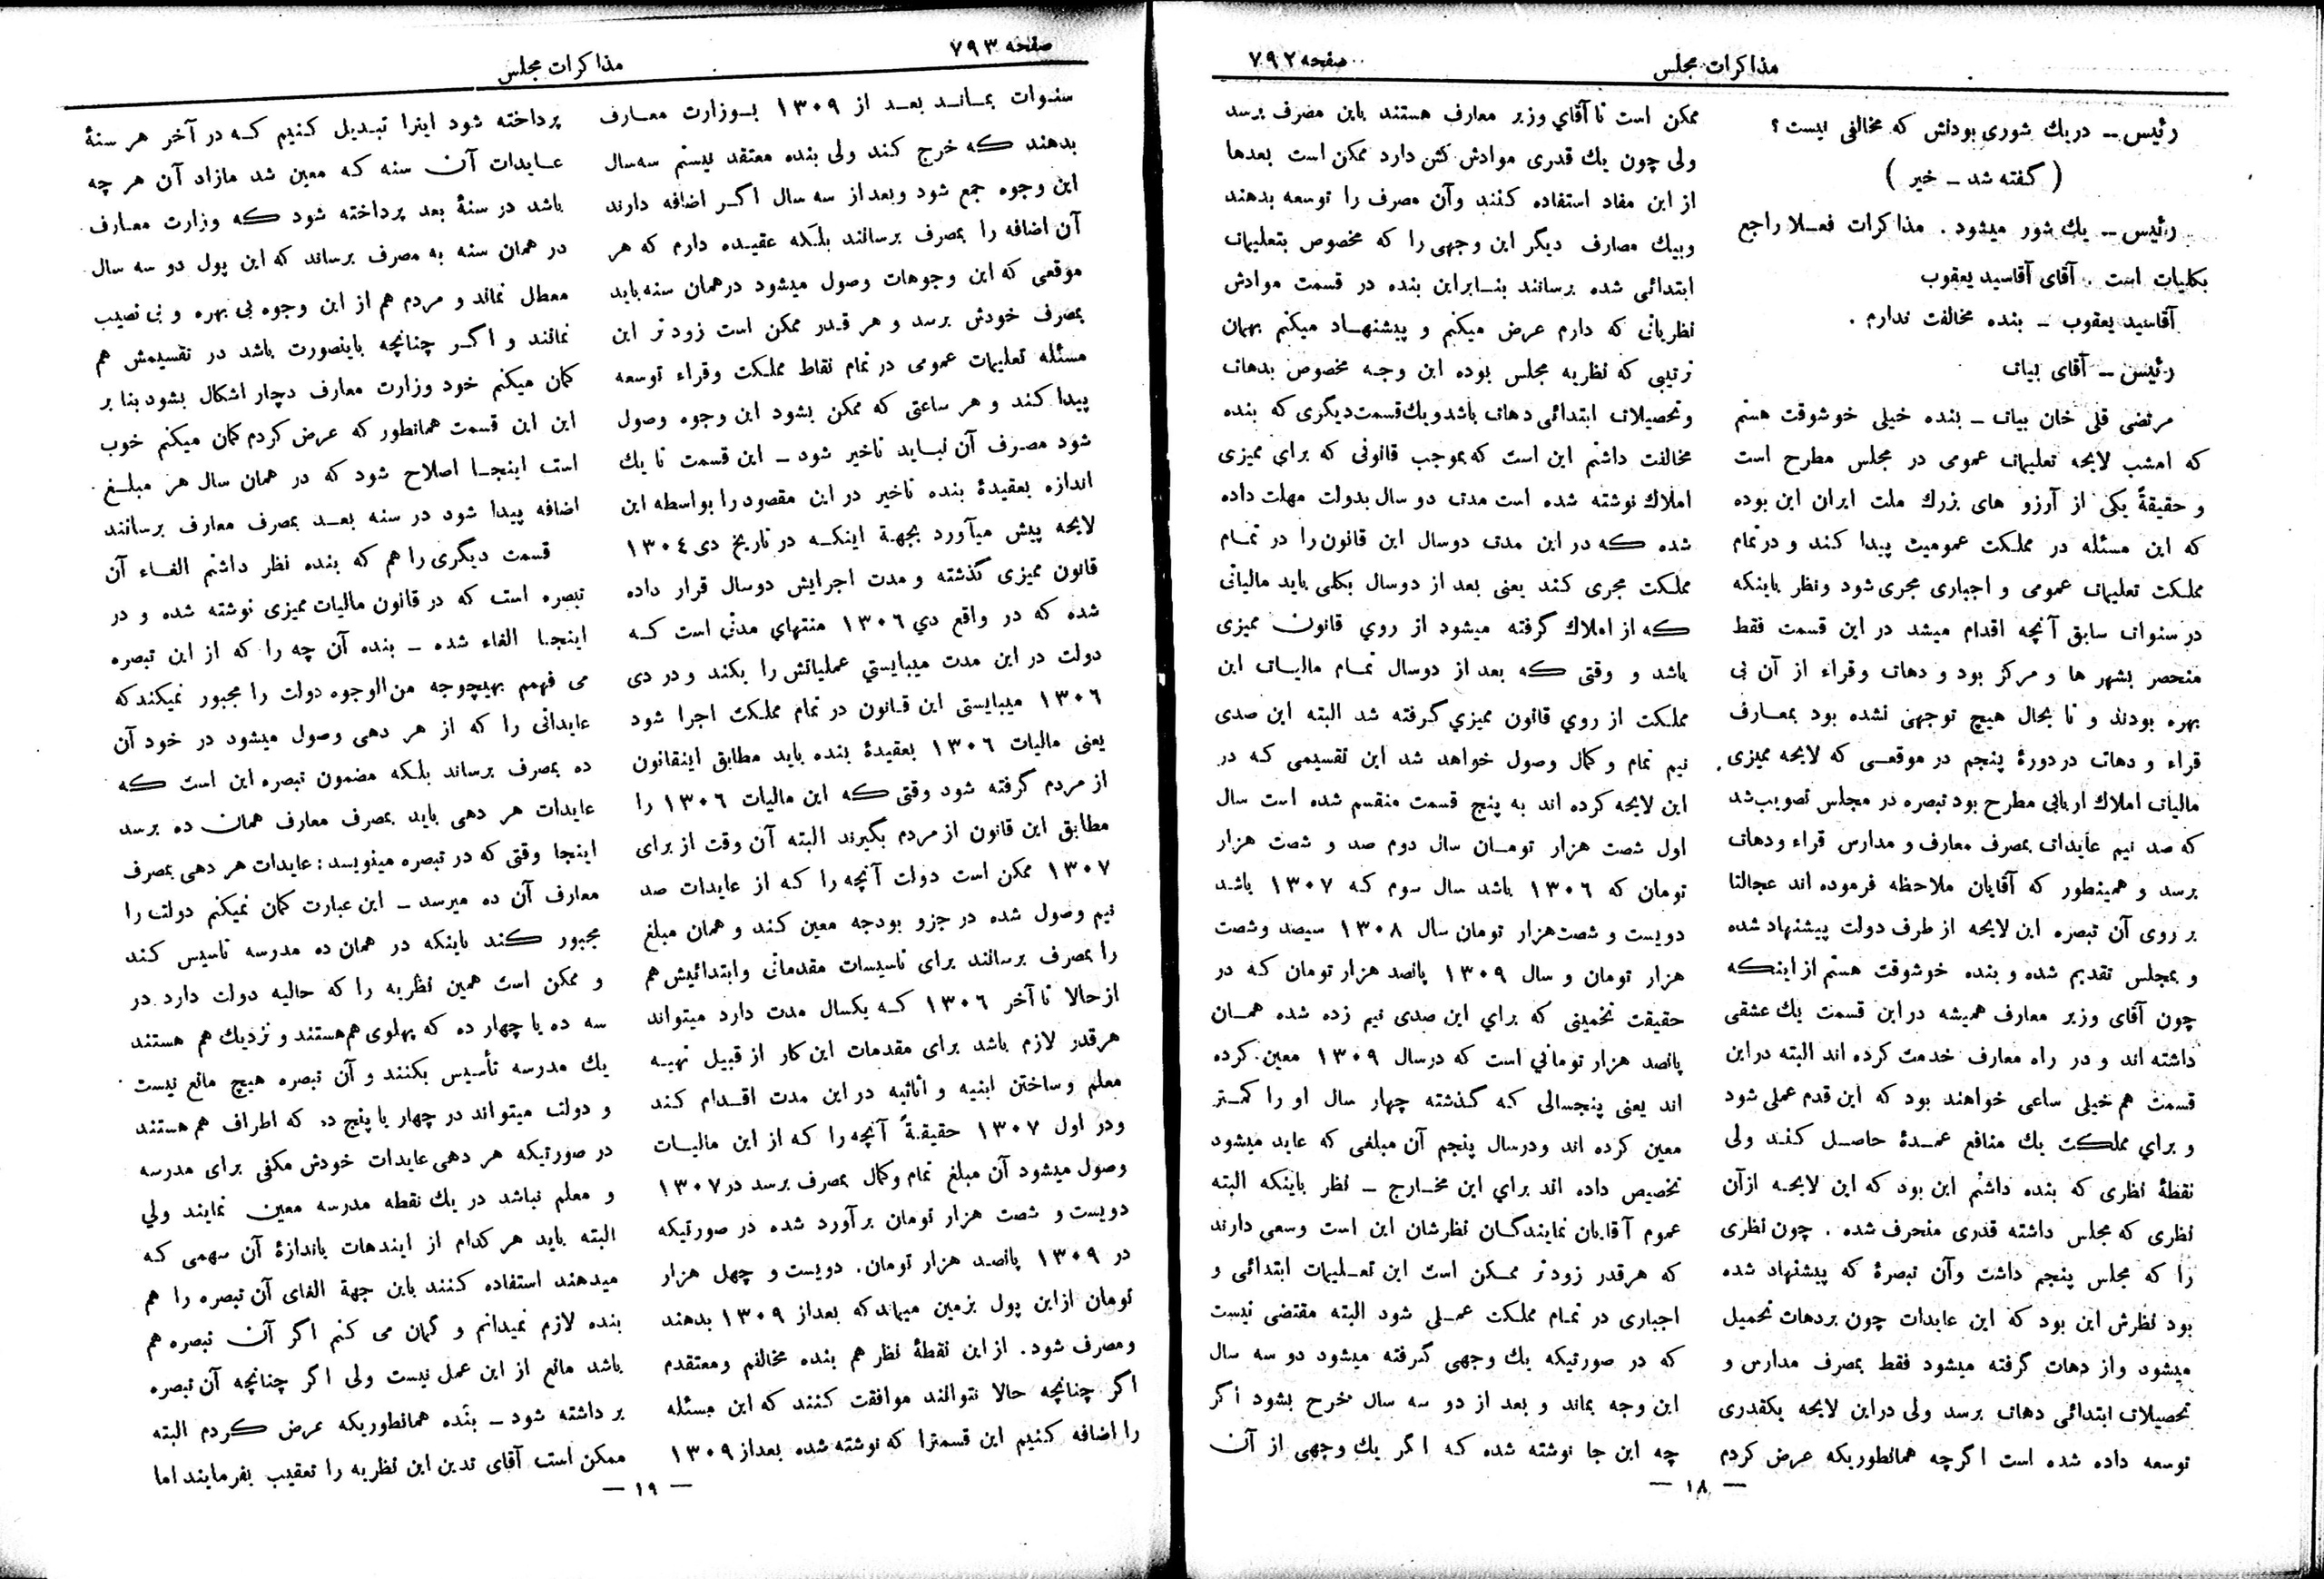 مذاکرات مجلس
صفحه ۷۹۲
رئیس ــ دریك شوری بودنش که مخالفی نیست ؟
( گفته شد ــ خیر )
رئیس ــ یك شور میشود . مذاکرات فعـلا راجع
بکلیات است . آقای آقاسید یعقوب
آقاسید یعقوب ــ بنده مخالفت ندارم .
رئیس ــ آقای بیات
مرتضی قلی خان بیات ــ بنده خیلی خوشوقت هستم
که امشب لایحه تعلیمات عمومی در مجلس مطرح است
و حقیقةً یکی از آرزو های بزرك ملت ایران این بوده
که این مسئله در مملکت عمومیت پیدا کند و در تمام
مملکت تعلیمات عمومی و اجباری مجری شود ونظر باینکه
در سنوات سابق آنچه اقدام میشد در این قسمت فقط
منحصر بشهر ها و مرکز بود و دهات وقراء از آن بی
بهره بودند و تا بحال هیچ توجهی نشده بود بمعـارف
قراء و دهات در دورهٔ پنجم در موقعـی که لایحه ممیزی
مالیات املاك اربابی مطرح بود تبصره در مجلس تصویب شد
که صد نیم عایدات بمصرف معارف و مدارس قراء ودهات
برسد و همینطور که آقایان ملاحظه فرموده اند عجالتا
بر روی آن تبصره این لایحه از طرف دولت پیشنهاد شده
و بمجلس تقدیم شده و بنده خوشوقت هستم از اینکه
چون آقای وزیر معارف همیشه در این قسمت یك عشقی
داشته اند و در راه معارف خدمت کرده اند البته در این
قسمت هم خیلی ساعی خواهند بود که این قدم عملی شود
و براي مملکت یك منافع عمـدهٔ حاصـل کنـد ولی
نقطهٔ نظری که بنده داشتم این بود که این لایحـه از آن
نظری که مجلس داشته قدری منحرف شده . چون نظری
را که مجلس پنجم داشت وآن تبصرهٔ که پیشنهاد شده
بود نظرش این بود که این عایدات چون بردهات تحمیل
میشود واز دهات گرفته میشود فقط بمصرف مدارس و
تحصیلات ابتدائی دهات برسد ولی در این لایحه یکقدری
توسعه داده شده است اگرچه همانطوریکه عرض کردم
ممکن است تا آقاي وزیر معارف هستند باین مصرف برسد
ولی چون یك قدری موادش کش دارد ممکن است بعدها
از این مفاد استفاده کنند وآن مصرف را توسعه بدهند
وبیك مصارف دیگر این وجهی را که مخصوص بتعلیمات
ابتدائی شده برسانند بنـابراین بنده در قسمت موادش
نظریاتی که دارم عرض میکنم و پیشنهـاد میکنم بهمان
ترتیبی که نظریه مجلس بوده این وجـه مخصوص بدهات
و تحصیلات ابتدائی دهات باشد ویك قسمت دیگری که بنده
مخالفت داشتم این است که بموجب قانونی که برای ممیزی
املاك نوشته شده است مدت دو سال بدولت مهلت داده
شده که در این مدت دوسال این قانون را در تمـام
مملکت مجری کند یعنی بعد از دوسال بکلی باید مالیاتی
که از املاك گرفته میشود از روي قانون ممیزی
باشد و وقتی که بعد از دوسال تمـام مالیـات این
مملکت از روي قانون ممیزي گرفته شد البته این صدی
نیم تمام و کمال وصول خواهد شد این تقسیمی کـه در
این لایحه کرده اند به پنج قسمت منقسم شده است سال
اول شصت هزار تومـان سال دوم صد و شصت هزار
تومان که ۱۳۰۶ باشد سال سوم کـه ۱۳۰۷ باشد
دویست و شصت هزار تومان سال ۱۳۰۸ سیصد وشصت
هزار تومان و سال ۱۳۰۹ پانصد هزار تومان کـه در
حقیقت تخمینی که براي این صدی نیم زده شده همـان
پانصد هزار توماني است که درسال ۱۳۰۹ معین کرده
اند یعنی پنجسالی کـه گذشته چهار سال او را کمـتر
معین کرده اند ودرسال پنجم آن مبلغی که عاید میشود
تخصیص داده اند براي این مخـارج ــ نظر باینکه البته
عموم آقایان نمایندگان نظرشان این است وسعی دارند
که هرقدر زود تر ممـکن است این تعـلیمات ابتدائی و
اجباری در تمام مملکت عمـلی شود البته مقتضی نیست
که در صورتیکه یك وجهی گرفته میشود دو سه سال
این وجه بماند و بعد از دو سه سال خرج بشود اگر
چه این جا نوشته شده کـه اگر یك وجهی از آن
ــ ۱۸ ــ
صفحه ۷۹۳
مذاکرات مجلس
سنـوات بمـانـد بعـد از ۱۳۰۹ بـوزارت معـارف
بدهند که خرج کند ولی بنده معتقد نیستم سه سال
این وجوه جمع شود وبعد از سه سال اگـر اضافه دارند
آن اضافه را بمصرف برسانند بلکه عقیـده دارم که هر
موقعی که این وجوهات وصول میشود درهمان سنه باید
بمصرف خودش برسد و هر قـدر ممکن است زود تر این
مسئله تعلیمات عمومی در تمام نقاط مملکت وقراء توسعه
پیدا کند و هر ساعتی که ممکن بشود این وجوه وصول
شود مصـرف آن نبـاید تاخیر شود ــ این قسمت تا یك
اندازه بعقیدهٔ بنده تاخیر در این مقصود را بواسطه این
لایحه پیش میآورد بجهة اینکـه در تاریخ دی ۱۳۰٤
قانون ممیزی گذشته و مدت اجرایش دوسال قرار داده
شده که در واقع دي ۱۳۰۶ منتهاي مدتی است کـه
دولت در این مدت میبایستي عملیاتش را بکند و در دی
۱۳۰۶ میبایستی این قـانون در تمام مملکت اجرا شود
یعنی مالیات ۱۳۰۶ بعقیدهٔ بنده باید مطابق اینقانون
از مردم گرفته شود وقتی که این مالیات ۱۳۰۶ را
مطابق این قانون از مردم بگیرند البته آن وقت از برای
۱۳۰۷ ممکن است دولت آنچه را کـه از عایدات صد
نیم وصول شده در جزو بودجه معین کند و همان مبلغ
را بمصرف برسانند برای تاسیسات مقدماتی وابتدائیش هم
از حالا تا آخر ۱۳۰۶ کـه یکسال مدت دارد میتواند
هرقدر لازم باشد برای مقدمات این کار از قبیل تهیـه
معلم و ساختن ابنیه و اثاثیه در این مدت اقـدام کند
ودر اول ۱۳۰۷ حقیقـةً آنچه را کـه از این مالیـات
وصول میشود آن مبلغ تمام وکمال بمصرف برسد در ۱۳۰۷
دویست و شصت هزار تومان برآورد شده در صورتیکه
در ۱۳۰۹ پانصد هزار تومان. دویست و چهل هزار
تومان از این پول بزمین میماند که بعداز ۱۳۰۹ بدهند
ومصرف شود. از این نقطهٔ نظر هم بنده مخالفم ومعتقدم
اگر چنانچه حالا نتوانند موافقت کنند که این مسئله
را اضافه کنیم این قسمترا که نوشته شده بعداز ۱۳۰۹
پرداخته شود اینرا تبـدیل کـنیم کـه در آخر هر سنهٔ
عـایدات آن سنه کـه معین شد مازاد آن هر چه
باشد در سنهٔ بعد پرداخته شود که وزارت معـارف
در همان سنه به مصرف برساند که این پول دو سه سال
معطل نماند و مردم هم از این وجوه بی بهره و بی نصیب
نمانند و اگـر چنانچه باینصورت باشد در تقسیمش هم
گمان میکنم خود وزارت معارف دچار اشکال بشود بنا بر
این این قسمت همانطور که عرض کردم گمان میکنم خوب
است اینجـا اصلاح شود که در همان سال هر مبلـغ
اضافه پیدا شود در سنه بعـد بمصرف معارف برسانند
قسمت دیگری را هم که بنده نظر داشتم الغـاء آن
تبصره است که در قانون مالیات ممیزی نوشته شده و در
اینجـا الغاء شده ــ بنده آن چه را که از این تبصره
می فهمم بهیچوجه من الوجوه دولت را مجبور نمیکند که
عایداتی را که از هر دهی وصول میشود در خود آن
ده بمصرف برساند بلکه مضمون تبصره این است که
عایدات هر دهی باید بمصرف معارف همان ده برسد
اینجا وقتی که در تبصره مینویسد: عایدات هر دهی بمصرف
معارف آن ده میرسد ــ این عبارت گمان نمیکنم دولت را
مجبور کند باینکه در همان ده مدرسه تاسیس کند
و ممکن است همین نظریه را که حالیه دولت دارد در
سه ده یا چهار ده که پهلوی هم هستند و نزدیك هم هستند
یك مدرسه تأسیس بکنند و آن تبصره هیچ مانع نیست
و دولت میتواند در چهار یا پنج ده که اطراف هم هستند
در صورتیکه هر دهی عایدات خودش مکفی برای مدرسه
و معلم نباشد در یك نقطه مدرسه معین نمایند ولي
البته باید هر کدام از ایندهات باندازهٔ آن سهمی کـه
میدهند استفاده کنند باین جهة الغای آن تبصره را هم
بنده لازم نمیدانم و گمان می کنم اگر آن تبصره هم
باشد مانع از این عمل نیست ولی اگر چنانچه آن تبصره
بر داشته شود ــ بنده همانطوریکه عرض کردم البته
ممکن است آقای تدین این نظریه را تعقیب بفرمایند اما
ــ ۱۹ ــ